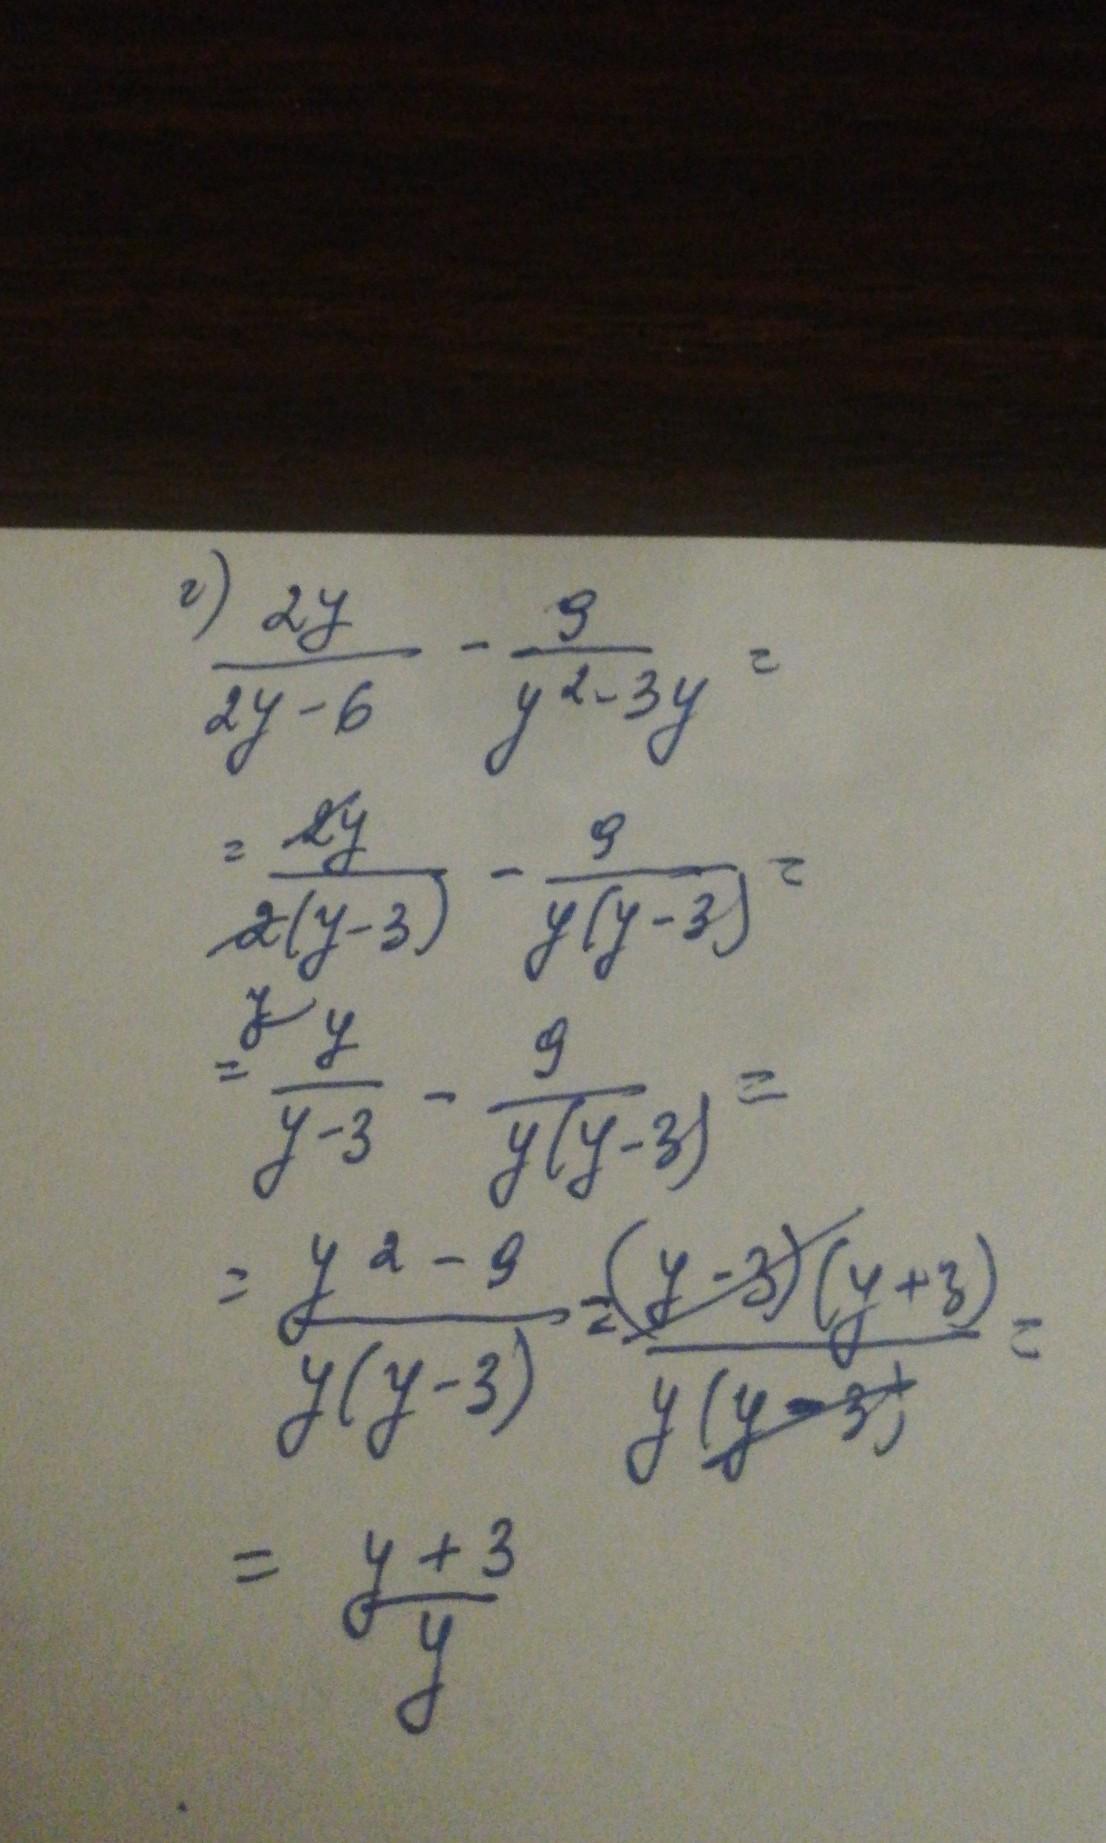 г) 2y/(2y-6) - 9/(y²-3y) =
= 2y/(2(y-3)) - 9/(y(y-3)) =
= y y/(y-3) - 9/(y(y-3)) =
= (y²-9)/(y(y-3)) = ((y-3)(y+3))/(y(y-3)) =
= (y+3)/y